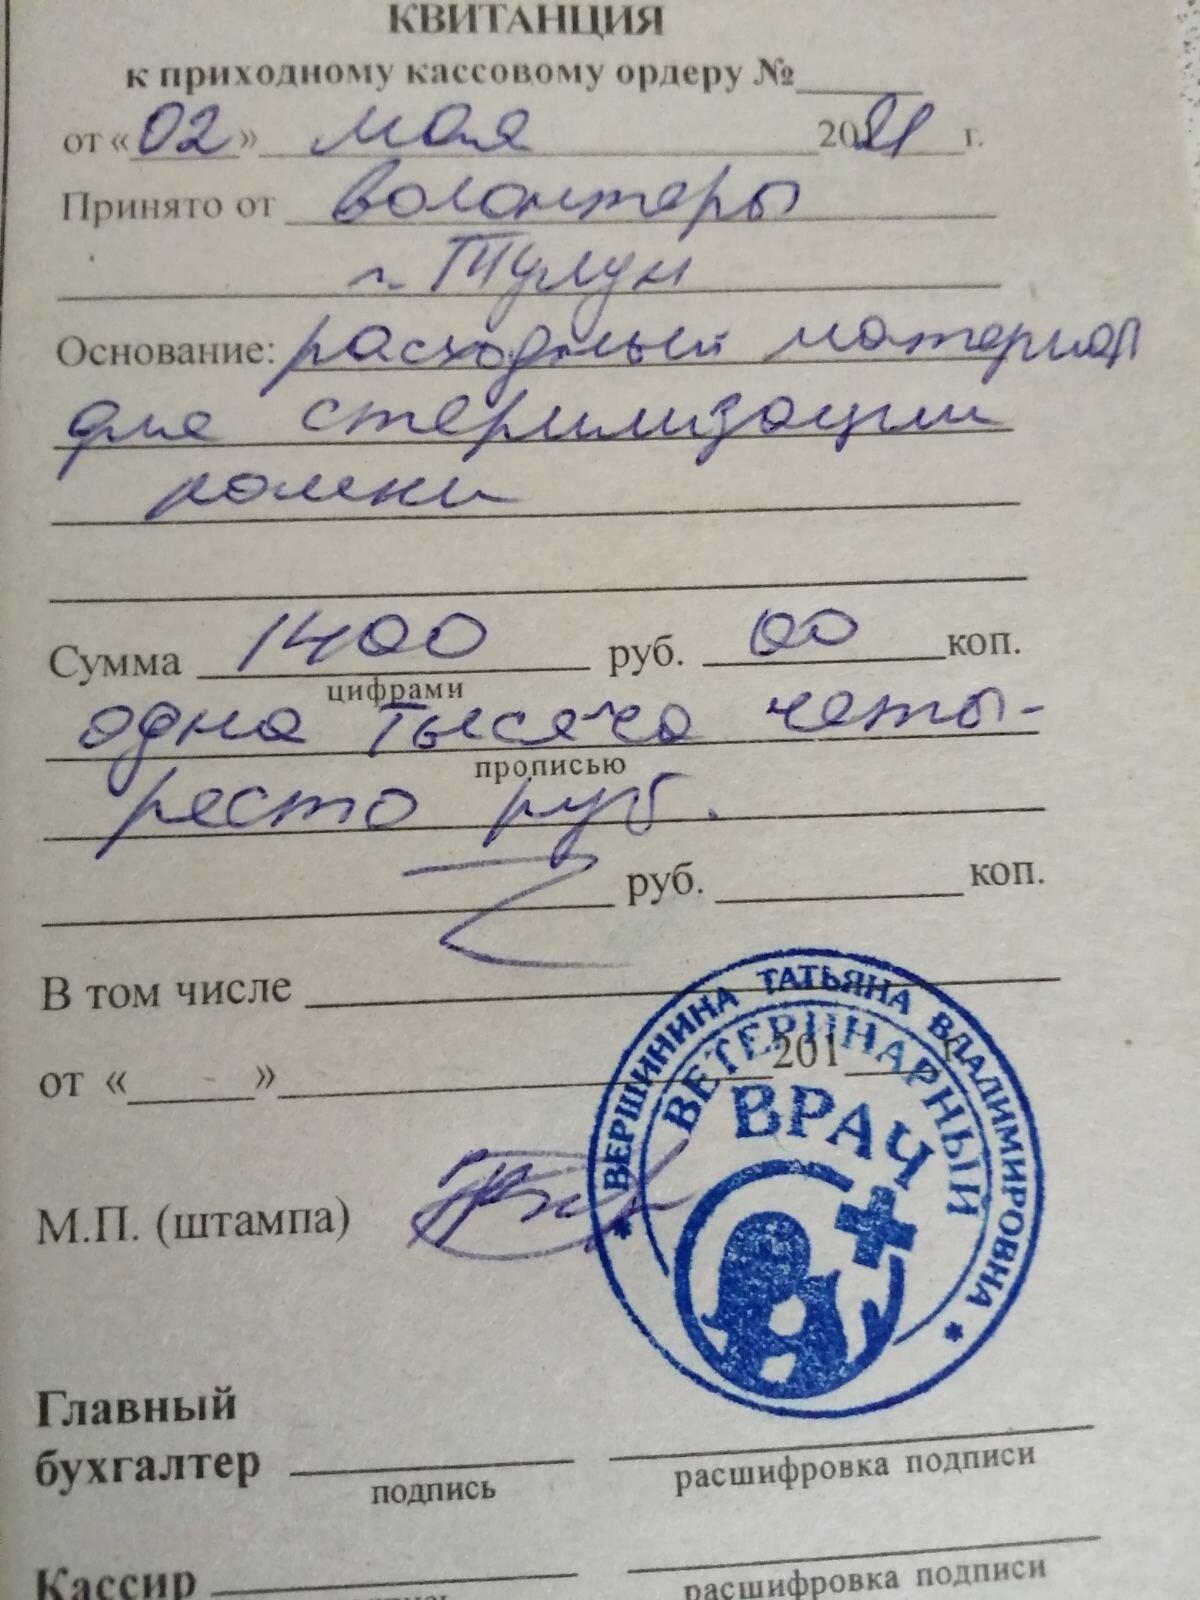 КВИТАНЦИЯ
к приходному кассовому ордеру №
от «02» мая 2021 г.
Принято от волонтеры
г. Тулун
Основание: расходный материал
для стерилизации
кошки
Сумма 1400 руб. 00 коп.
цифрами
одна тысяча четы-
прописью
ресто руб.
руб. коп.
В том числе
от « » 201 г.
ВЕРШИНИНА ТАТЬЯНА ВЛАДИМИРОВНА
ВЕТЕРИНАРНЫЙ
ВРАЧ
М.П. (штампа)
Главный
бухгалтер
подпись расшифровка подписи
Кассир
подпись расшифровка подписи